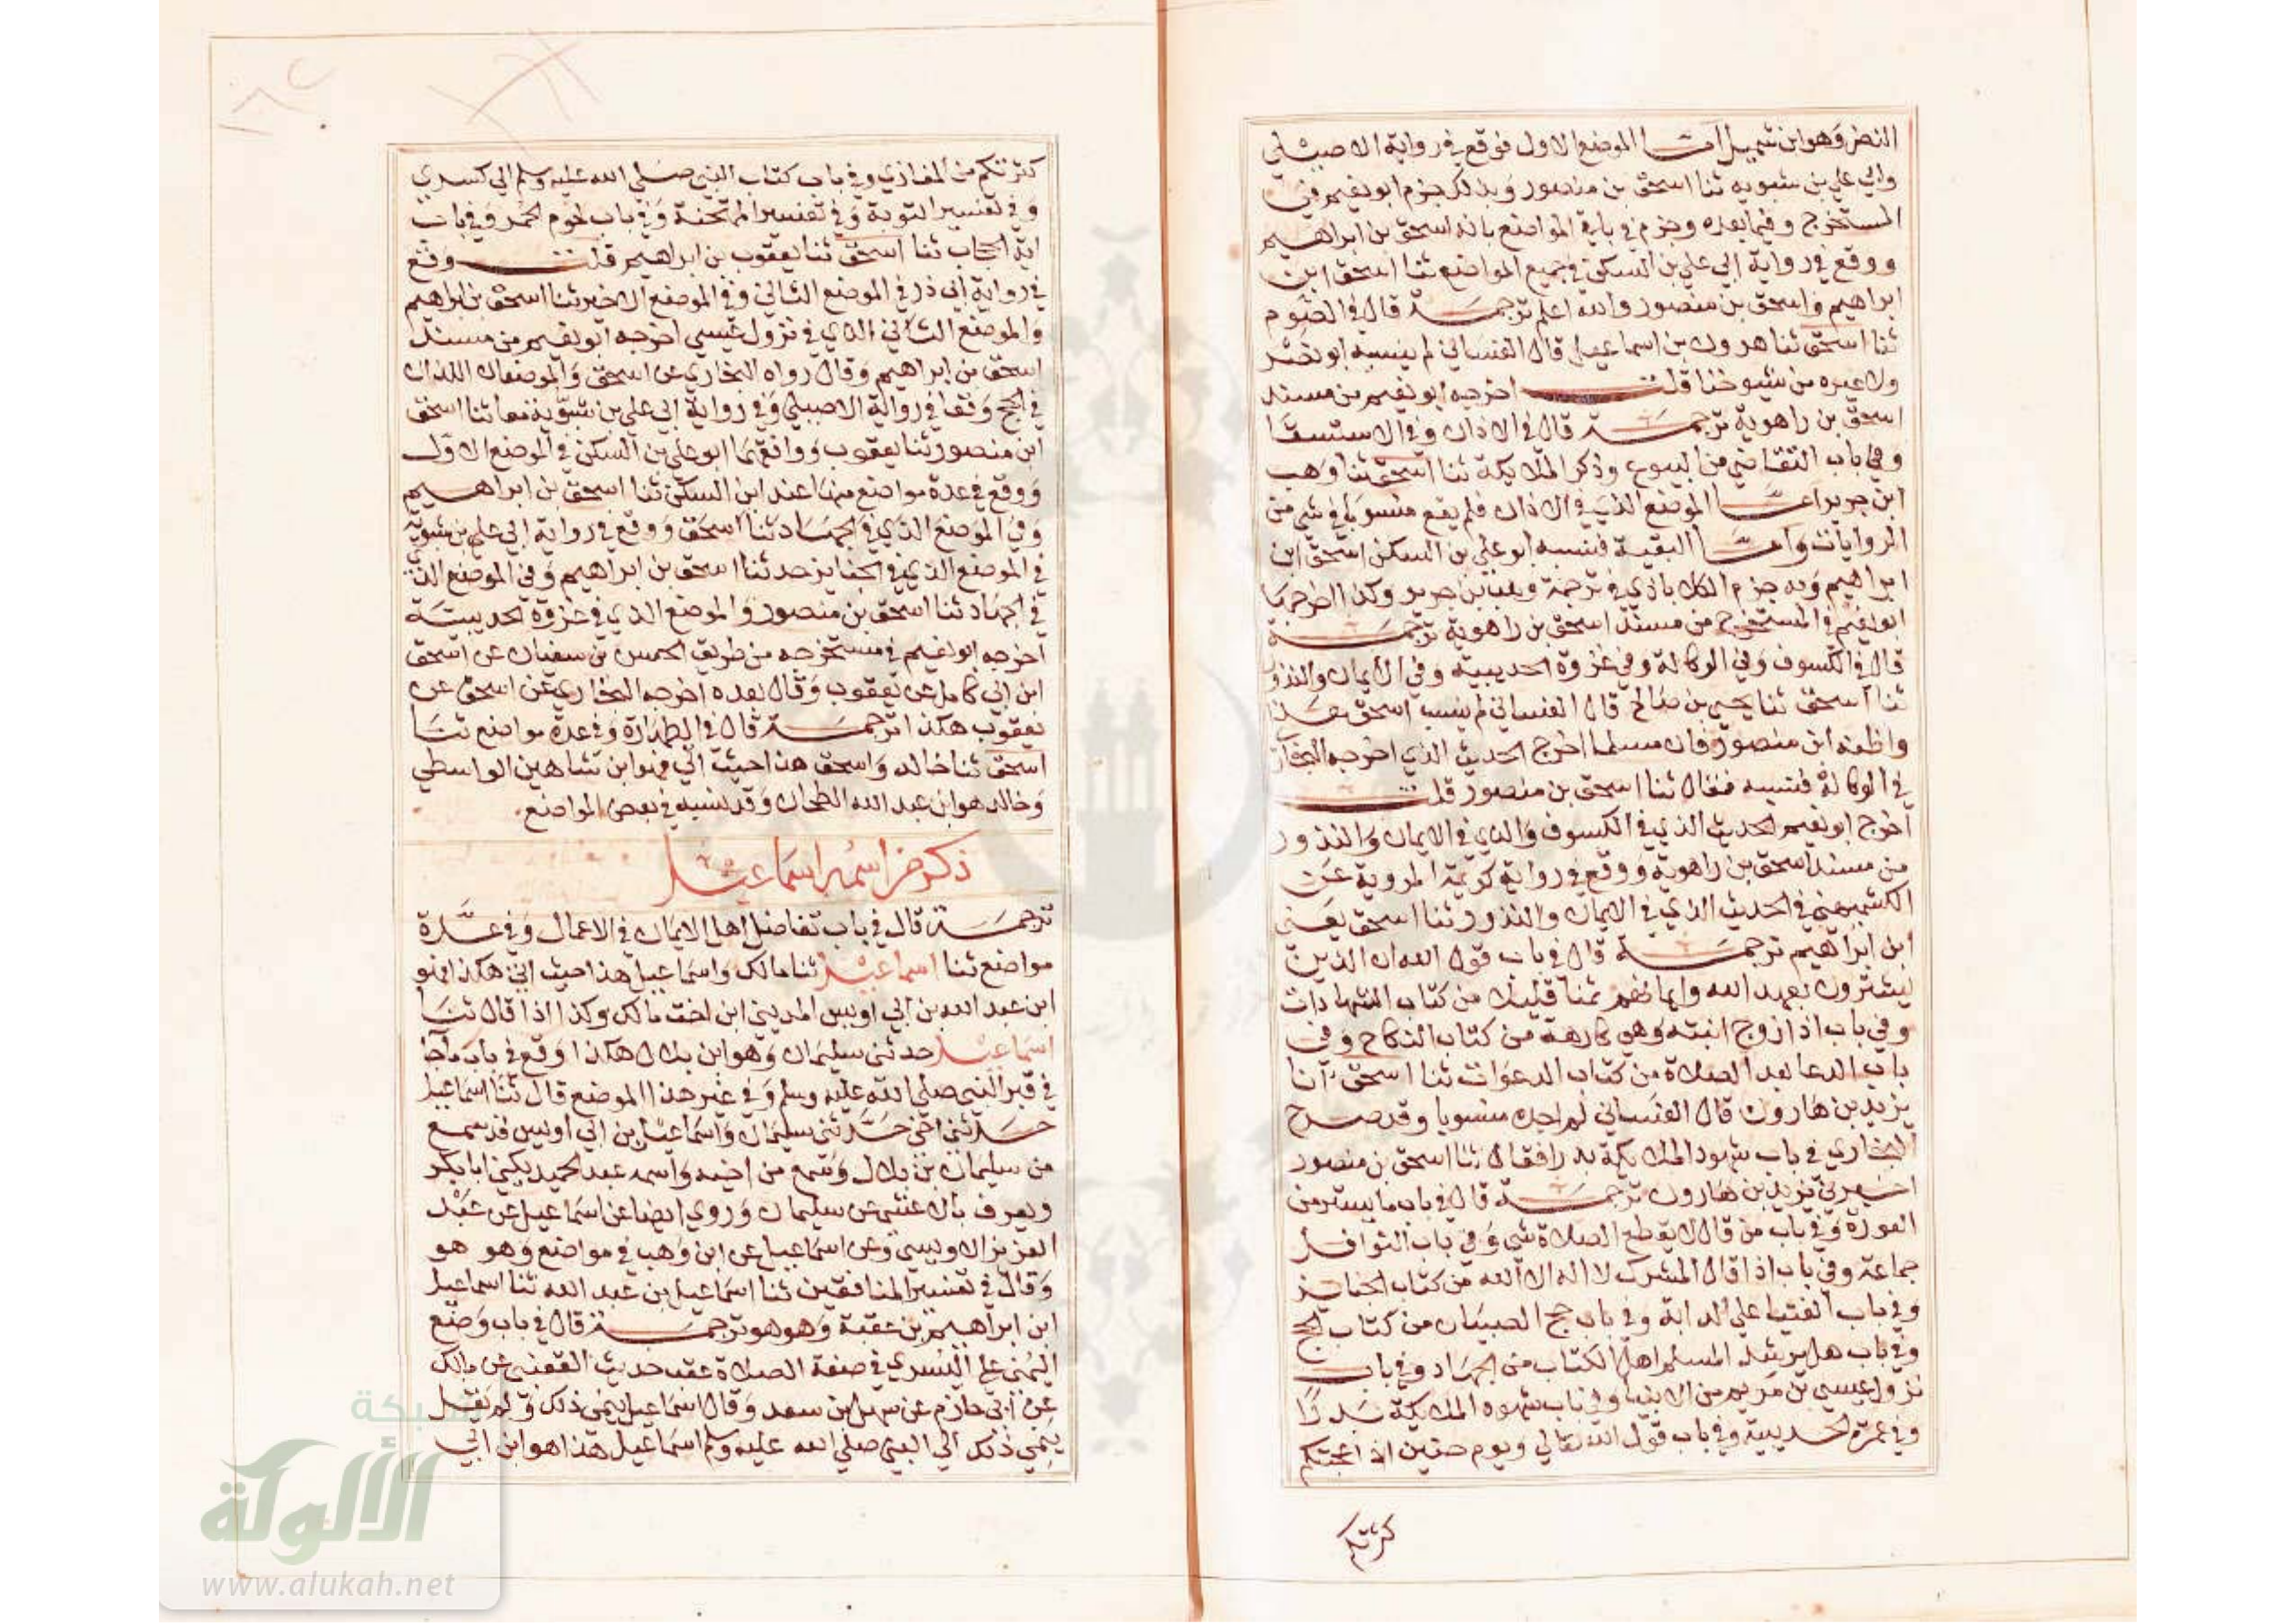 النضر وهو ابن شميل اما الموضع الاول فوقع في رواية الاصيلي
وابي علي بن شبويه ثنا اسحق بن منصور وبذلك جزم ابو نعيم في
المستخرج وفيما بعده وجزم في باقي المواضع بانه اسحق بن ابراهيم
ووقع في رواية ابي علي بن السكن في جميع المواضع ثنا اسحق ابن
ابراهيم واسحق بن منصور والله اعلم ترجمة قال في الصوم
ثنا اسحق ثنا هرون بن اسماعيل قال الغساني لم ينسبه ابو نصر
ولا غيره من شيوخنا قلت اخرجه ابو نعيم من مسند
اسحق بن راهوية ترجمة قال في الاذان وفي الاستسقا
وفي باب التقاضي من البيوع وذكر الملايكة ثنا اسحق ثنا وهب
ابن جرير اما الموضع الذي في الاذان فلم يقع منسوبا في شي من
الروايات واما البقية فنسبه ابو علي بن السكن اسحق ابن
ابراهيم وبه جزم الكلاباذي في ترجمة وهب بن جرير وكذا اخرجها
ابو نعيم في المستخرج من مسند اسحق بن راهوية ترجمة
قال في الكسوف وفي الوكالة وفي غزوة الحديبية وفي الايمان والنذور
ثنا اسحق ثنا يحيى بن صالح قال الغساني لم ينسب اسحق هذا
واظنه ابن منصور فان مسلما اخرج الحديث الذي اخرجه البخاري
في الوكالة فنسبه فقال ثنا اسحق بن منصور قلت
اخرج ابو نعيم الحديث الذي في الكسوف والذي في الايمان والنذور
من مسند اسحق بن راهوية ووقع في رواية كريمة المروية عن
الكشميهني في الحديث الذي في الايمان والنذور ثنا اسحق يعني
ابن ابراهيم ترجمة قال في باب قول الله ان الذين
يشترون بعهد الله وايمانهم ثمنا قليلا من كتاب الشهادات
وفي باب اذا زوج ابنته وهي كارهة من كتاب النكاح وفي
باب الدعا بعد الصلاة من كتاب الدعوات ثنا اسحق انا
يزيد بن هارون قال الغساني لم اجده منسوبا وقد صرح
البخاري في باب شهود الملايكة بدرا فقال ثنا اسحق بن منصور
اخبرني يزيد بن هارون ترجمة قال في باب ما يستر من
العورة وفي باب من قال لا يقطع الصلاة شي وفي باب النوافل
جماعة وفي باب اذا قال المشرك لا اله الا الله من كتاب الجنايز
وفي باب الفتيا علي الدابة وفي باب حج الصبيان من كتاب الحج
وفي باب هل يرشد المسلم اهل الكتاب من الجهاد وفي باب
نزول عيسي بن مريم من الانبيا وفي باب شهود الملايكة بدرا
وفي عمرة الحديبية وفي باب قول الله تعالي ويوم حنين اذ اعجبتكم
كثرتكم
كثرتكم من المغازي وفي باب كتاب النبي صلي الله عليه وسلم الي كسري
وفي تفسير التوبة وفي تفسير الممتحنة وفي باب لحوم الحمر وفي باب
اية الحجاب ثنا اسحق ثنا يعقوب بن ابراهيم قلت وقع
في رواية ابي ذر في الموضع الثاني وفي الموضع الاخير ثنا اسحق بن ابراهيم
والموضع الثاني الذي في نزول عيسي اخرجه ابو نعيم من مسند
اسحق بن ابراهيم وقال رواه البخاري عن اسحق والموضعان اللذان
في الحج وقعا في رواية الاصيلي وفي رواية ابي علي بن شبويه معا ثنا اسحق
ابن منصور ثنا يعقوب ووافقهما ابو علي بن السكن في الموضع الاول
ووقع في عدة مواضع منها عند ابن السكن ثنا اسحق بن ابراهيم
وفي الموضع الذي في الجهاد ثنا اسحق ووقع في رواية ابي علي بن شبويه
في الموضع الذي في الجنايز حدثنا اسحق بن ابراهيم وفي الموضع الذي
في الجهاد ثنا اسحق بن منصور والموضع الذي في غزوة الحديبية
اخرجه ابو نعيم في مستخرجه من طريق الحسن بن سفيان عن اسحق
ابن ابي كامل عن يعقوب وقال بعده اخرجه البخاري عن اسحق عن
يعقوب هكذا ترجمة قال في الطهارة وفي عدة مواضع ثنا
اسحق ثنا خالد واسحق هذا حيث اتي فهو ابن شاهين الواسطي
وخالد هو ابن عبد الله الطحان وقد نسبه في بعض المواضع.
ذكر من اسمه اسماعيل
ترجمة قال في باب تفاضل اهل الايمان في الاعمال وفي عدة
مواضع ثنا اسماعيل ثنا مالك واسماعيل هذا حيث اتي هكذا فهو
ابن عبد الله بن ابي اويس المديني ابن اخت مالك وكذا اذا قال ثنا
اسماعيل حدثني سليمان وهو ابن بلال هكذا وقع في باب ما جا
في قبر النبي صلي الله عليه وسلم وفي غير هذا الموضع قال ثنا اسماعيل
حدثني اخي حدثني سليمان واسماعيل بن ابي اويس قد سمع
من سليمان بن بلال وسمع من اخيه واسمه عبد الحميد يكني ابا بكر
ويعرف بالاعشي عن سليمان وروي ايضا عن اسماعيل عن عبد
العزيز الاويسي وعن اسماعيل عن ابن وهب في مواضع وهو هو
وقال في تفسير المنافقين ثنا اسماعيل بن عبد الله ثنا اسماعيل
ابن ابراهيم بن عقبة وهو هو ترجمة قال في باب وضع
اليمني علي اليسري في صفة الصلاة عقب حديث القعنبي عن مالك
عن ابي حازم عن سهل بن سعد وقال اسماعيل ينمي ذلك ولم يقل
ينمي ذلك الي النبي صلي الله عليه وسلم اسماعيل هذا هو ابن ابي
شبكة
الألوكة
www.alukah.net